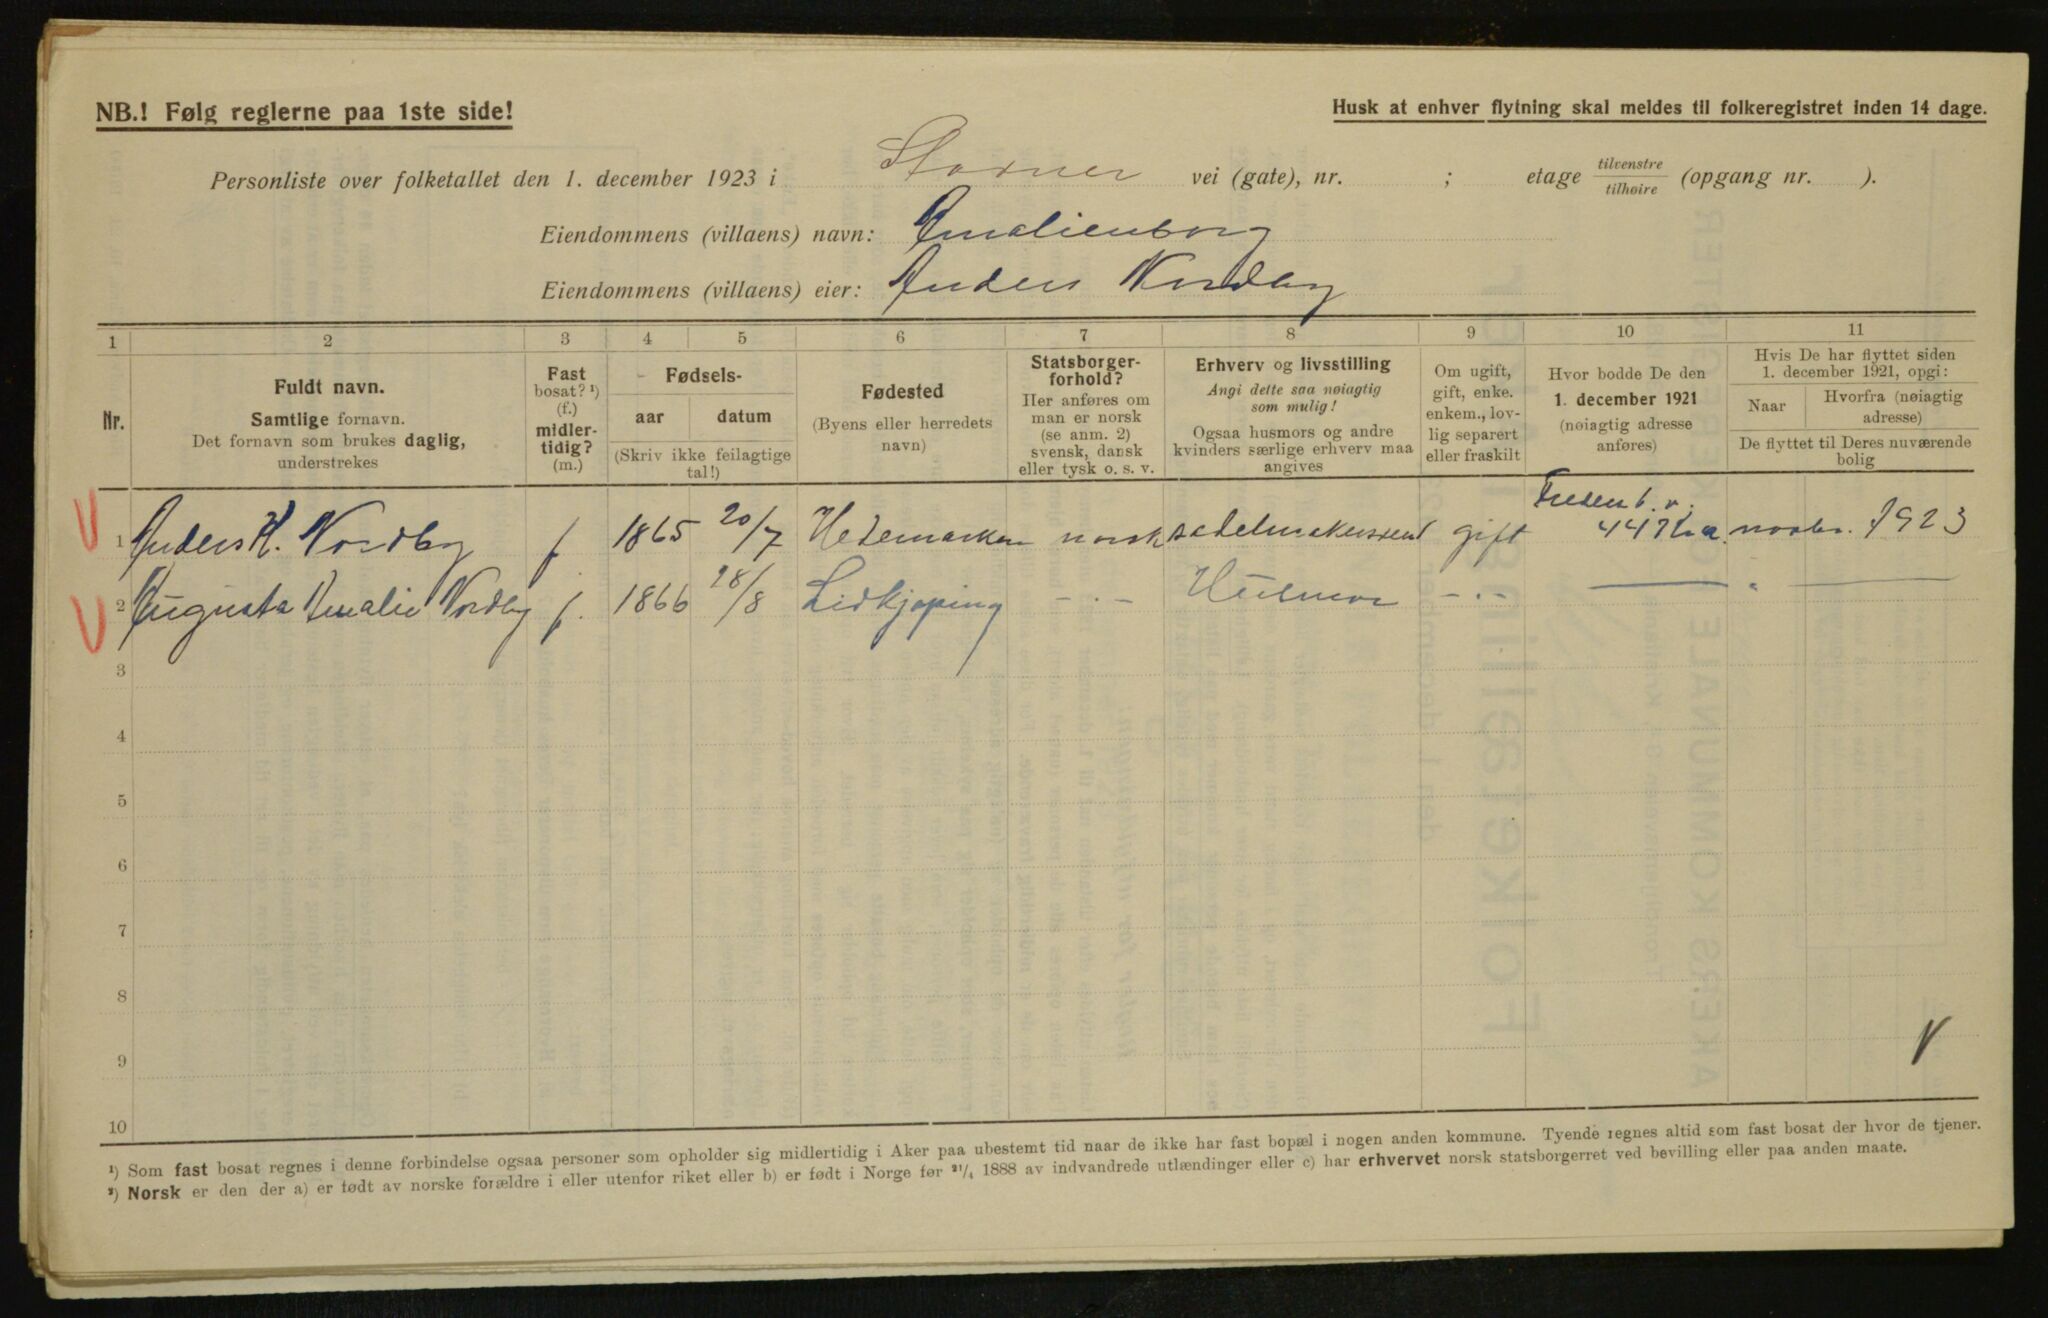 NB.! Følg reglerne paa 1ste side!
Husk at enhver flytning skal meldes til folkeregistret inden 14 dage.
Personliste over folketallet den 1. december 1923 i vei (gate), nr. ; etage tilvenstre / tilhøire (opgang nr. ).
Eiendommens (villaens) navn: Amalienborg
Eiendommens (villaens) eier: Anders Nordby
1 2 3 4 5 6 7 8 9 10 11
Nr.
Fuldt navn.
Samtlige fornavn.
Det fornavn som brukes daglig,
understrekes
Fast
bosat? ¹)
(f.)
midler-
tidig?
(m.)
Fødsels-
aar datum
(Skriv ikke feilagtige
tal!)
Fødested
(Byens eller herredets
navn)
Statsborger-
forhold?
Her anføres om
man er norsk
(se anm. 2)
svensk, dansk
eller tysk o. s. v.
Erhverv og livsstilling
Angi dette saa nøiagtig
som mulig!
Ogsaa husmors og andre
kvinders særlige erhverv maa
angives
Om ugift,
gift, enke.
enkem., lov-
lig separert
eller fraskilt
Hvor bodde De den
1. december 1921
(nøiagtig adresse
anføres)
Hvis De har flyttet siden
1. december 1921, opgi:
Naar
Hvorfra (nøiagtig
adresse)
De flyttet til Deres nuværende
bolig
1 Anders H. Nordby f 1865 20/7 Hedemarken norsk gift 44 novbr. 1923
2 Augusta Amalie Nordby f. 1866 28/8 Lidkjøping — . — Husmor — . — — " —
3
4
5
6
7
8
9
10
¹) Som fast bosat regnes i denne forbindelse ogsaa personer som opholder sig midlertidig i Aker paa ubestemt tid naar de ikke har fast bopæl i nogen anden kommune. Tyende regnes altid som fast bosat der hvor de tjener.
²) Norsk er den der a) er født av norske forældre i eller utenfor riket eller b) er født i Norge før ²¹/₄ 1888 av indvandrede utlændinger eller c) har erhvervet norsk statsborgerret ved bevilling eller paa anden maate.